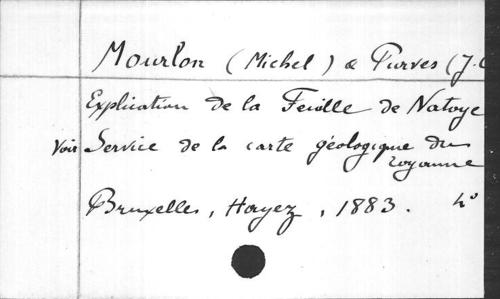 Mourlon (Michel) & Purves (J.
Explication de la Feuille de Natoye
Voir Service de la carte géologique du
royaume
Bruxelles, Hayez, 1883. 4°